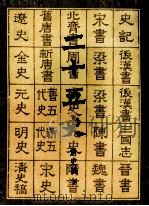 二十五史
史記 後漢書 後漢書 三國志 晉書
宋書 梁書 梁書 陳書 魏書
北齊書 周書
舊唐書 新唐書 舊五代史 新五代史 宋史
遼史 金史 元史 明史 清史稿